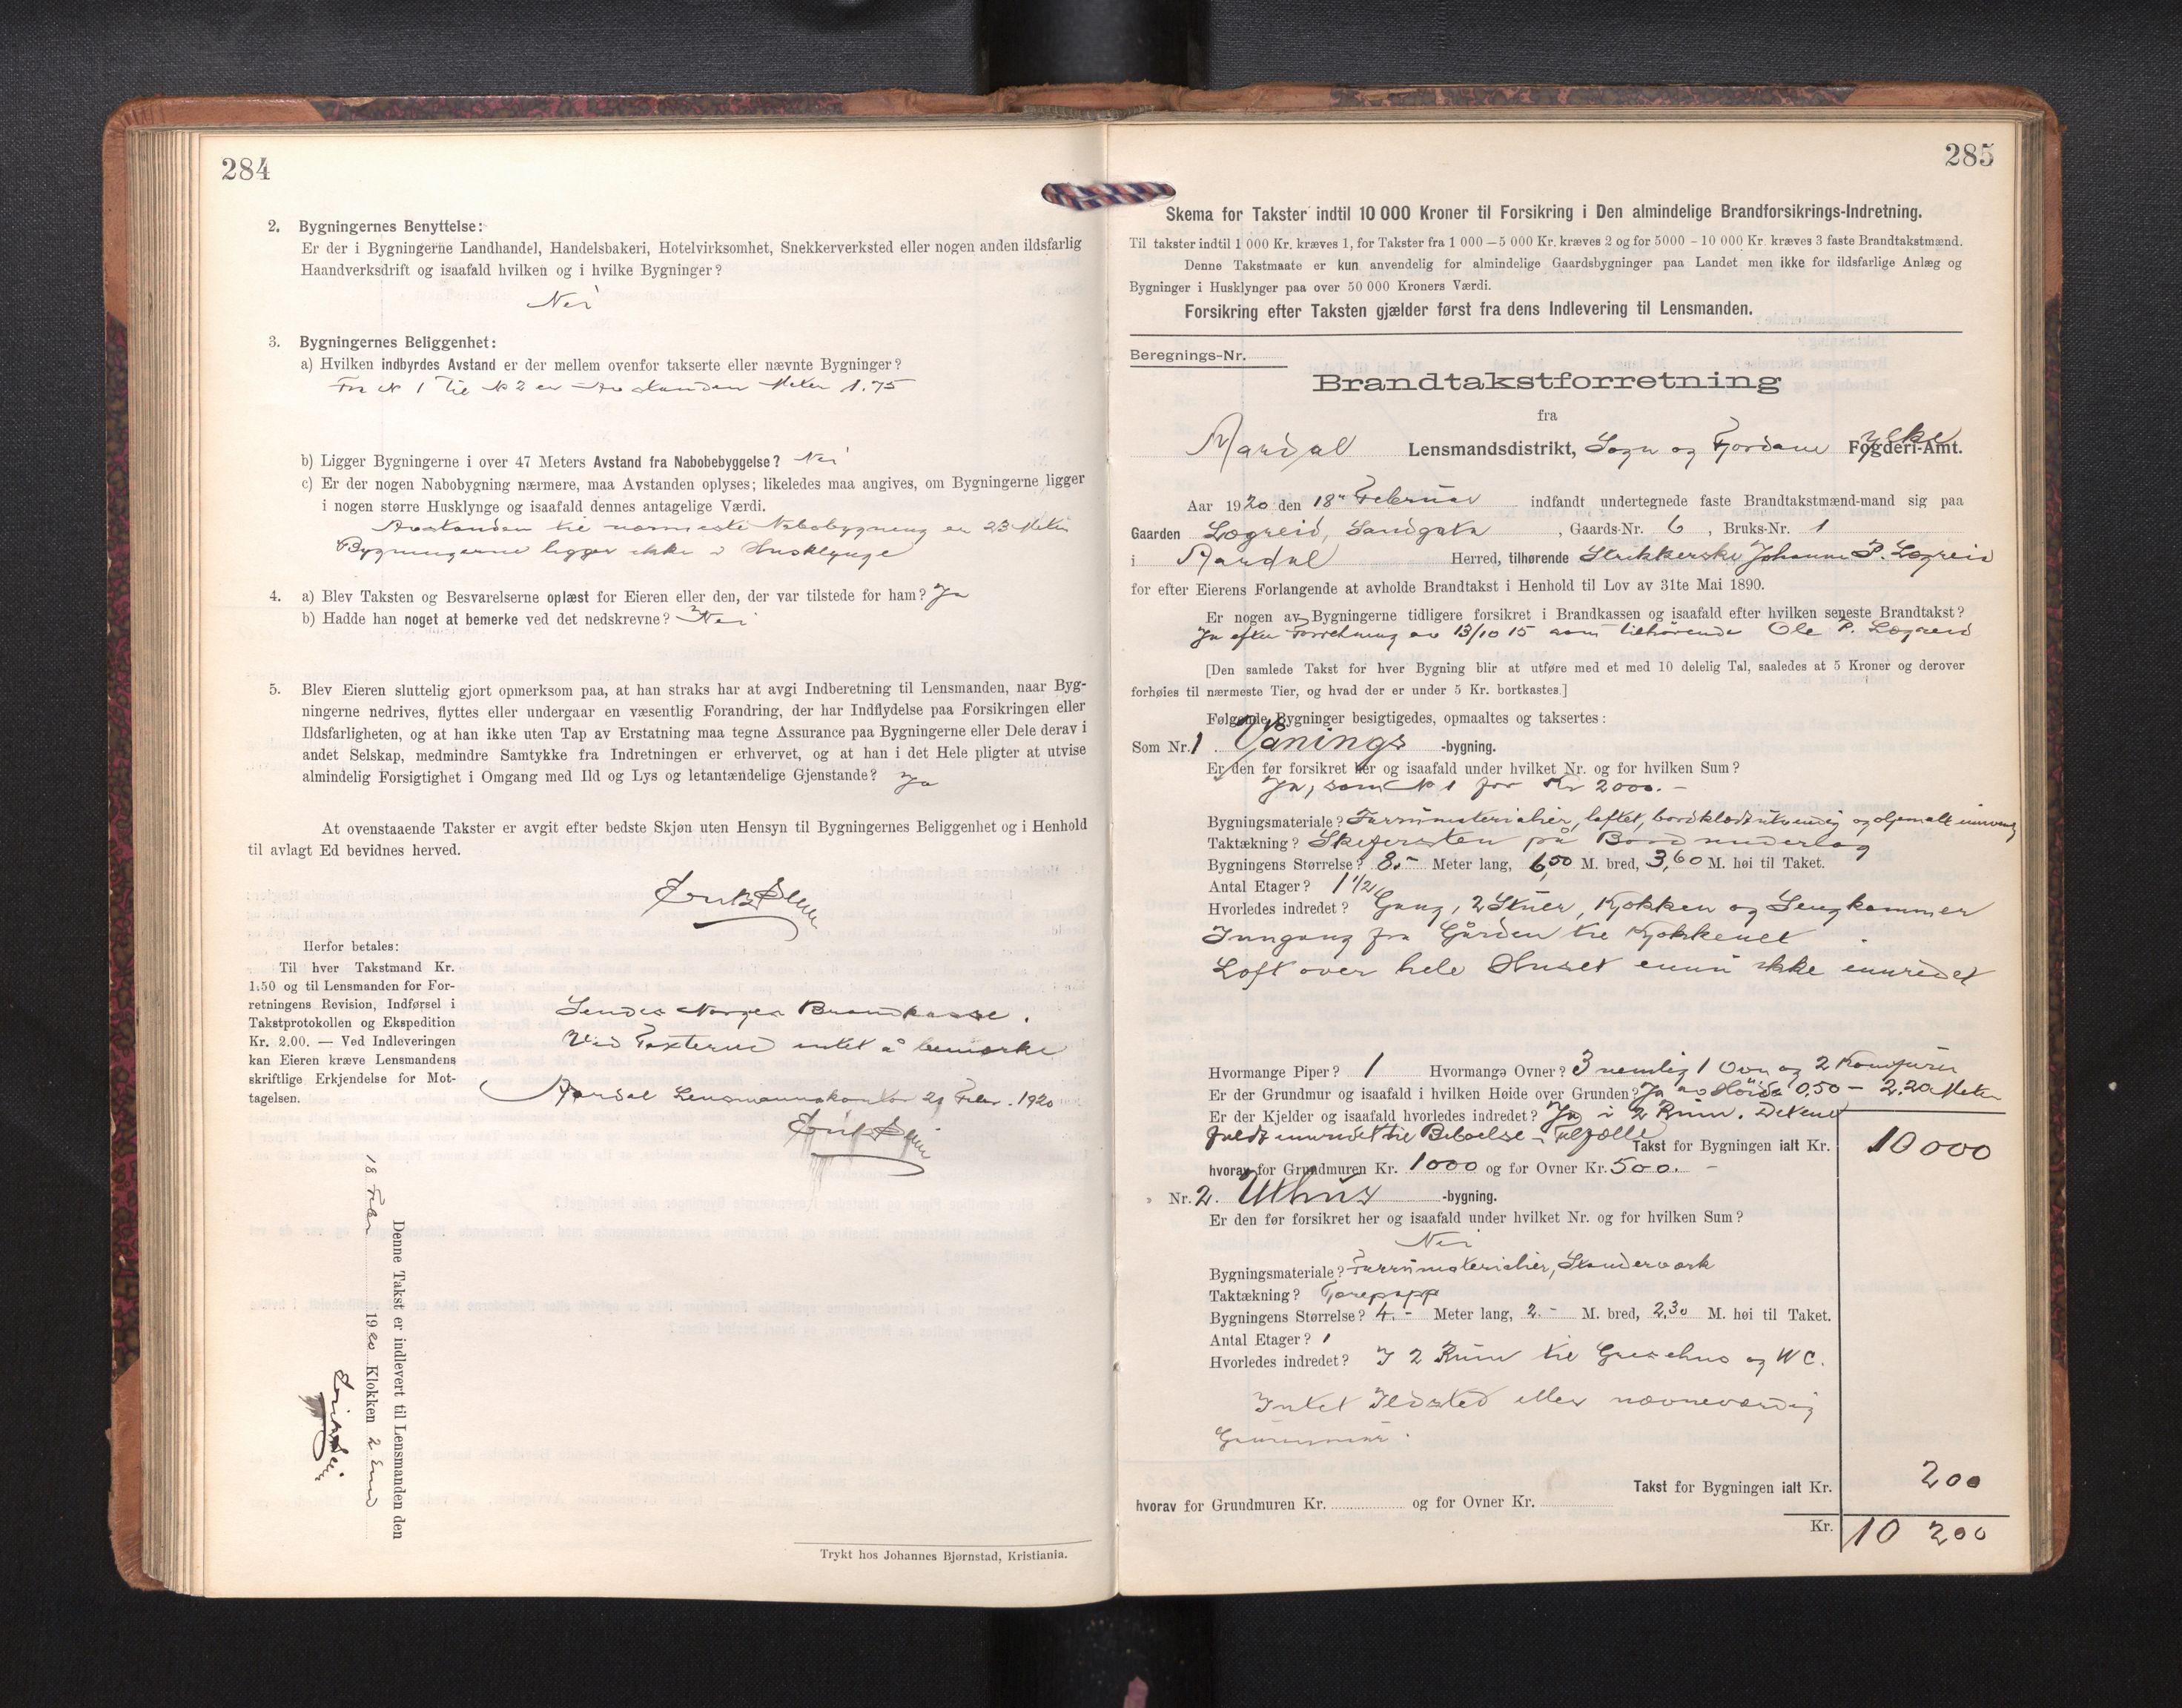 284
2. Bygningernes Benyttelse:
Er der i Bygningerne Landhandel, Handelsbakeri, Hotelvirksomhet, Snekkerverksted eller nogen anden ildsfarlig
Haandverksdrift og isaafald hvilken og i hvilke Bygninger?
Nei
3. Bygningernes Beliggenhet:
a) Hvilken indbyrdes Avstand er der mellem ovenfor takserte eller nævnte Bygninger?
Fra N 1 til N 2 er Avstanden Meter 1.75
b) Ligger Bygningerne i over 47 Meters Avstand fra Nabobebyggelse? Nei
c) Er der nogen Nabobygning nærmere, maa Avstanden oplyses; likeledes maa angives, om Bygningerne ligger
i nogen større Husklynge og isaafald dennes antagelige Værdi.
Avstanden til nærmeste Nabobygning er 23 Meter
Bygningerne ligger ikke i Husklynge
4. a) Blev Taksten og Besvarelserne oplæst for Eieren eller den, der var tilstede for ham? Ja
b) Hadde han noget at bemerke ved det nedskrevne? Nei
5. Blev Eieren sluttelig gjort opmerksom paa, at han straks har at avgi Indberetning til Lensmanden, naar Byg-
ningerne nedrives, flyttes eller undergaar en væsentlig Forandring, der har Indflydelse paa Forsikringen eller
Ildsfarligheten, og at han ikke uten Tap av Erstatning maa tegne Assurance paa Bygningerne eller Dele derav i
andet Selskap, medmindre Samtykke fra Indretningen er erhvervet, og at han i det Hele pligter at utvise
almindelig Forsigtighet i Omgang med Ild og Lys og letantændelige Gjenstande? Ja
At ovenstaaende Takster er avgit efter bedste Skjøn uten Hensyn til Bygningernes Beliggenhet og i Henhold
til avlagt Ed bevidnes herved.
Herfor betales:
Til hver Takstmand Kr.
1.50 og til Lensmanden for For-
retningens Revision, Indførsel i
Takstprotokollen og Ekspedition
Kr. 2.00. — Ved Indleveringen
kan Eieren kræve Lensmandens
skriftlige Erkjendelse for Mot-
tagelsen.
Sendes Norges Brandkasse.
Ved Taxterne intet å bemærke
Aardal Lensmannskontor 29 Febr. 1920
Denne Takst er indlevert til Lensmanden den
18 Febr 1920 Klokken 2 Emd
Trykt hos Johannes Bjørnstad, Kristiania.
285
Skema for Takster indtil 10 000 Kroner til Forsikring i Den almindelige Brandforsikrings-Indretning.
Til takster indtil 1 000 Kr. kræves 1, for Takster fra 1 000 — 5 000 Kr. kræves 2 og for 5000 – 10 000 Kr. kræves 3 faste Brandtakstmænd.
Denne Takstmaate er kun anvendelig for almindelige Gaardsbygninger paa Landet men ikke for ildsfarlige Anlæg og
Bygninger i Husklynger paa over 50 000 Kroners Værdi.
Forsikring efter Taksten gjælder først fra dens Indlevering til Lensmanden.
Beregnings-Nr.
Brandtakstforretning
fra
Aardal Lensmandsdistrikt, Sogn og Fjordane Fogderi-Amt. fylke
Aar 1920 den 18de Februar indfandt undertegnede faste Brandtakstmænd-mand sig paa
Gaarden Lægreid, Sandgata, Gaards-Nr. 6, Bruks-Nr. 1
i Aardal Herred, tilhørende Strikkerske Johanne P. Lægreid
for efter Eierens Forlangende at avholde Brandtakst i Henhold til Lov av 31te Mai 1890.
Er nogen av Bygningerne tidligere forsikret i Brandkassen og isaafald efter hvilken seneste Brandtakst?
Ja efter Forretning av 13/10 15 som tilhørende Ole P. Lægreid
[Den samlede Takst for hver Bygning blir at utføre med et med 10 delelig Tal, saaledes at 5 Kroner og derover
forhøies til nærmeste Tier, og hvad der er under 5 Kr. bortkastes.]
Følgende Bygninger besigtigedes, opmaaltes og taksertes:
Som Nr. 1. Vånings -bygning.
Er den før forsikret her og isaafald under hvilket Nr. og for hvilken Sum?
Ja, som N 1 for Kr 2000.-
Bygningsmateriale? Furrumaterialier, laftet, bordklædt utvendig og oljemalt innvendig
Taktækning? Skifersten på Bordunderlag
Bygningens Størrelse? 8.- Meter lang, 6,50 M. bred, 3,60 M. høi til Taket.
Antal Etager? 1 1/2
Hvorledes indredet? Gang, 2 Stuer, Kjøkken og Sengkammer
Inngang fra Gården til Kjøkkenet
Loft over hele Huset ennu ikke innredet
Hvormange Piper? 1 Hvormange Ovner? 3 nemlig 1 Ovn og 2 Komfurer
Er der Grundmur og isaafald i hvilken Høide over Grunden? Ja av Høide 0,50 – 2,20 Meter
Er der Kjelder og isaafald hvorledes indredet? Ja i 2 Rum. Det ene
fuldt innredet til Beboelse Takst for Bygningen ialt Kr. 10 000
hvorav for Grundmuren Kr. 1000 og for Ovner Kr. 500.-
Nr. 2. Uthus -bygning.
Er den før forsikret her og isaafald under hvilket Nr. og for hvilken Sum?
Nei
Bygningsmateriale? Furrumaterialier, Standerværk
Taktækning? Tarepapp
Bygningens Størrelse? 4.- Meter lang, 2.- M. bred, 2,30 M. høi til Taket.
Antal Etager? 1
Hvorledes indredet? I 2 Rum til Grisehus og WC.
Intet Ildsted eller nævneværdig
Grunnmur.
Takst for Bygningen ialt Kr. 200
hvorav for Grundmuren Kr. og for Ovner Kr.
Kr. 10 200